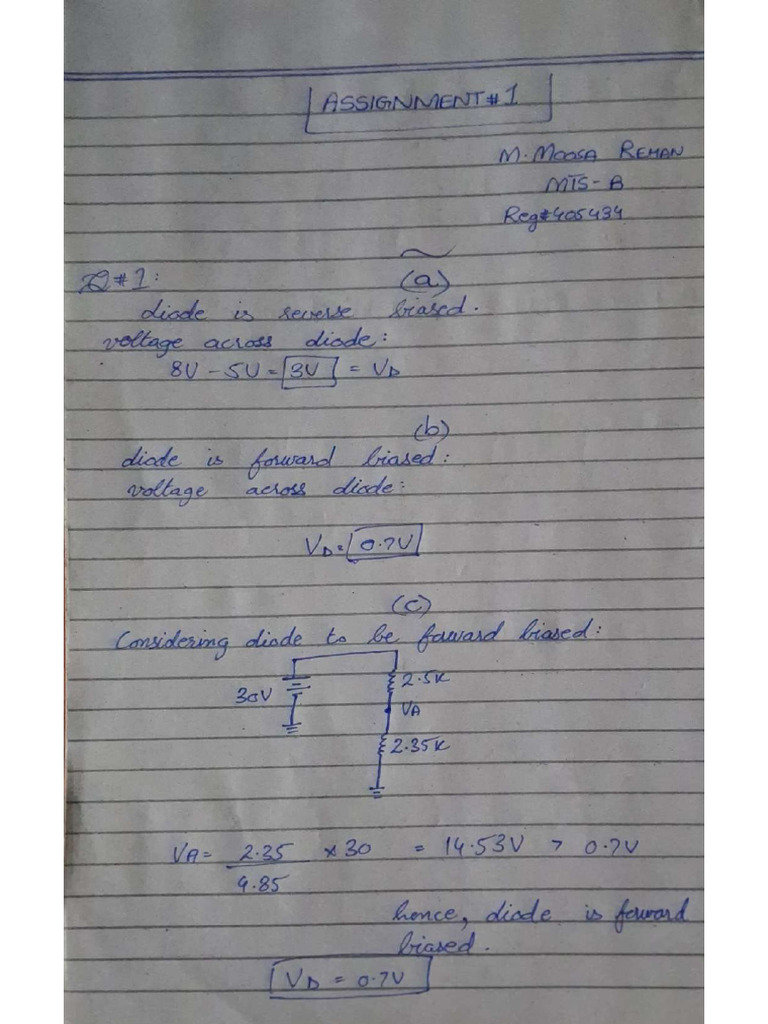 ASSIGNMENT#1
M. MOOSA REHAN
MTS-B
Reg#405434
Q#1:
(a)
diode is reverse biased.
voltage across diode:
8V - 5V = 3V = VD
(b)
diode is forward biased:
voltage across diode:
VD = 0.7V
(c)
Considering diode to be forward biased:
30V
2.5K
VA
2.35K
VA = 2.35 × 30 = 14.53V > 0.7V
4.85
hence, diode is forward
biased.
VD = 0.7V